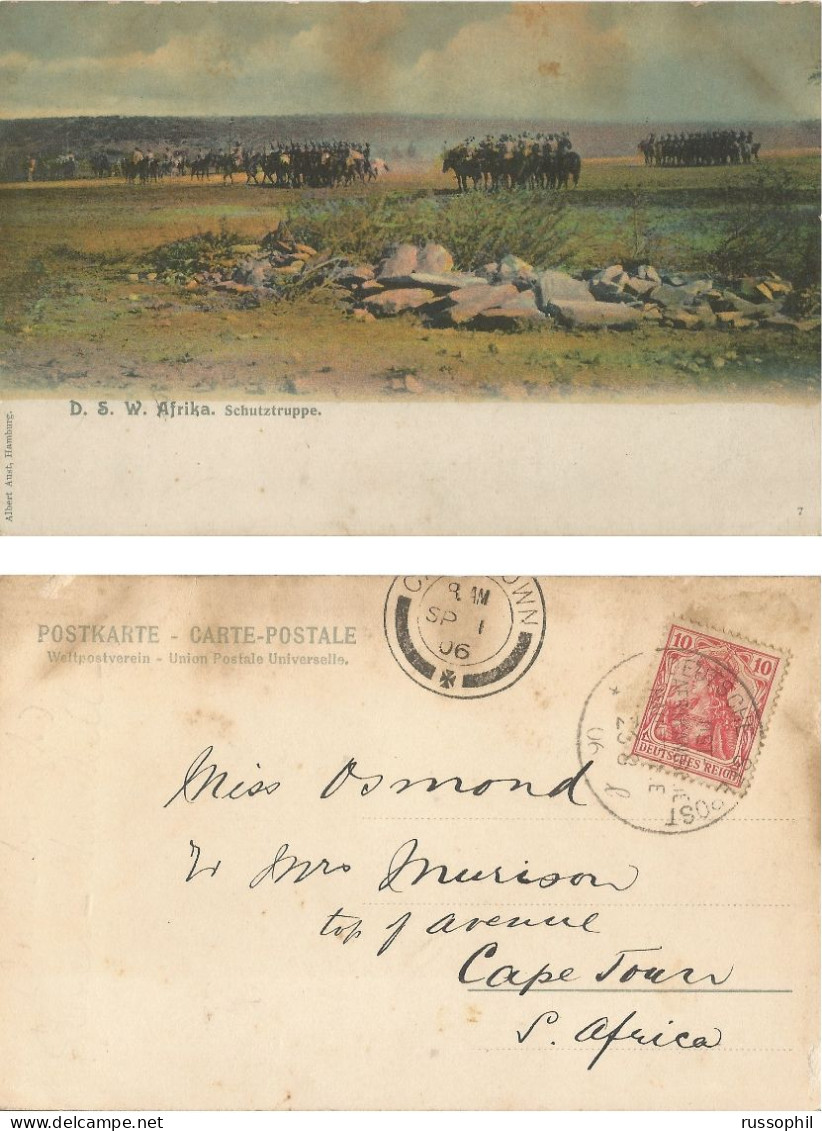 D. S. W. Afrika. Schutztruppe.
Albert Aust, Hamburg.
7
POSTKARTE - CARTE-POSTALE
Weltpostverein - Union Postale Universelle.
8. AM
SP 1
06
10 10
DEUTSCHES REICH
DEUTSCHE
POST
23 8
06
Miss Osmond
Mrs Murison
top of avenue
Cape Town
S. Africa
russophil www.delcampe.net